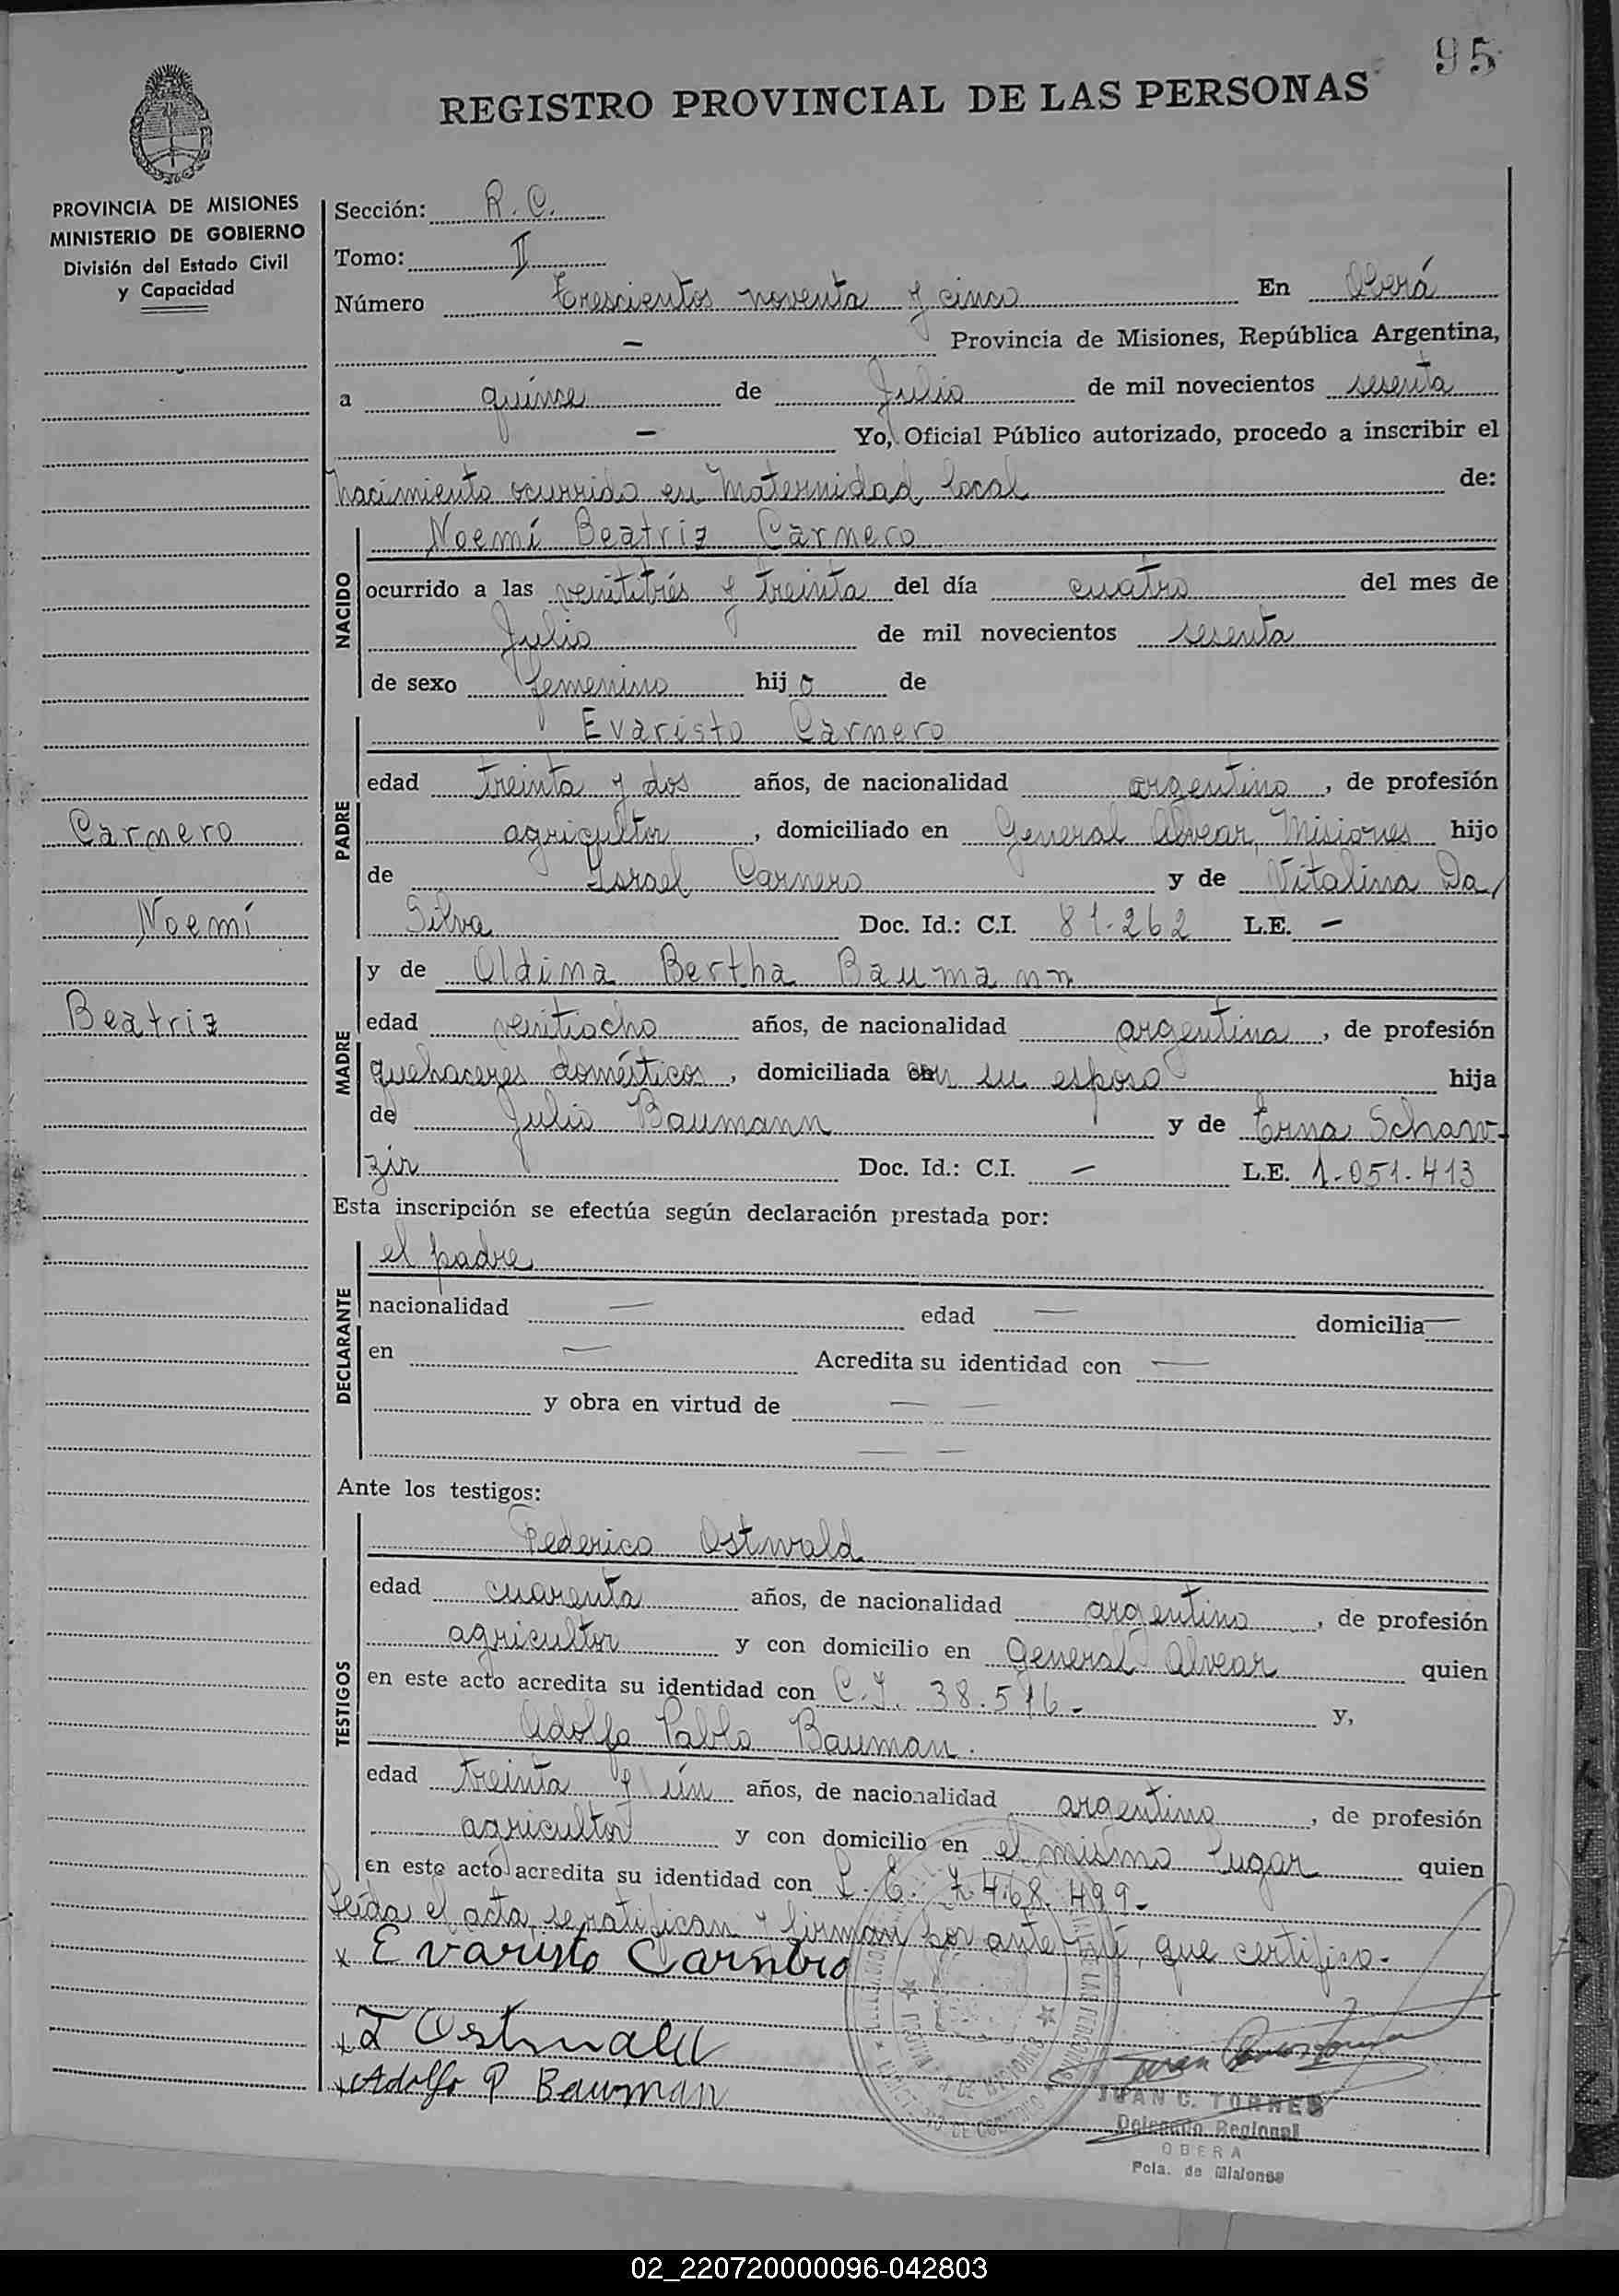 95
REGISTRO PROVINCIAL DE LAS PERSONAS
PROVINCIA DE MISIONES
MINISTERIO DE GOBIERNO
División del Estado Civil
y Capacidad
Sección: R. C.
Tomo: II
Número trescientos noventa y cinco En Oberá
— Provincia de Misiones, República Argentina,
a quinse de Julio de mil novecientos sesenta
— Yo, Oficial Público autorizado, procedo a inscribir el
nacimiento ocurrido en Maternidad local de:
NACIDO
Noemí Beatriz Carnero
ocurrido a las veintitrés y treinta del día cuatro del mes de
Julio de mil novecientos sesenta
de sexo femenino hijo de
PADRE
Evaristo Carnero
edad treinta y dos años, de nacionalidad argentino, de profesión
agricultor, domiciliado en General Alvear, Misiones hijo
de Israel Carnero y de Vitalina Da
Silva Doc. Id.: C.I. 81.262 L.E. —
Carnero
Noemí
Beatriz
MADRE
y de Oldina Bertha Baumann
edad veintiocho años, de nacionalidad argentina, de profesión
quehaceres domésticos, domiciliada con su esposo hija
de Julio Baumann y de Erna Schaw-
zir Doc. Id.: C.I. — L.E. 1.051.413
Esta inscripción se efectúa según declaración prestada por:
DECLARANTE
el padre
nacionalidad — edad — domicilia —
en — Acredita su identidad con —
y obra en virtud de — —
— —
Ante los testigos:
TESTIGOS
Federico Ostwald
edad cuarenta años, de nacionalidad argentino, de profesión
agricultor y con domicilio en General Alvear quien
en este acto acredita su identidad con C.I. 38.516- y,
Adolfo Pablo Bauman.
edad treinta y ún años, de nacionalidad argentino, de profesión
agricultor y con domicilio en el mismo lugar quien
en este acto acredita su identidad con L.E. 7.468.499-
Leída el acta, se ratifican y firman por ante mí, que certifico.-
x Evaristo Carnero
x F Ostwald
x Adolfo P Bauman
JUAN C. TORRES
Delegado Regional
OBERA
Pcia. de Misiones
02_220720000096-042803